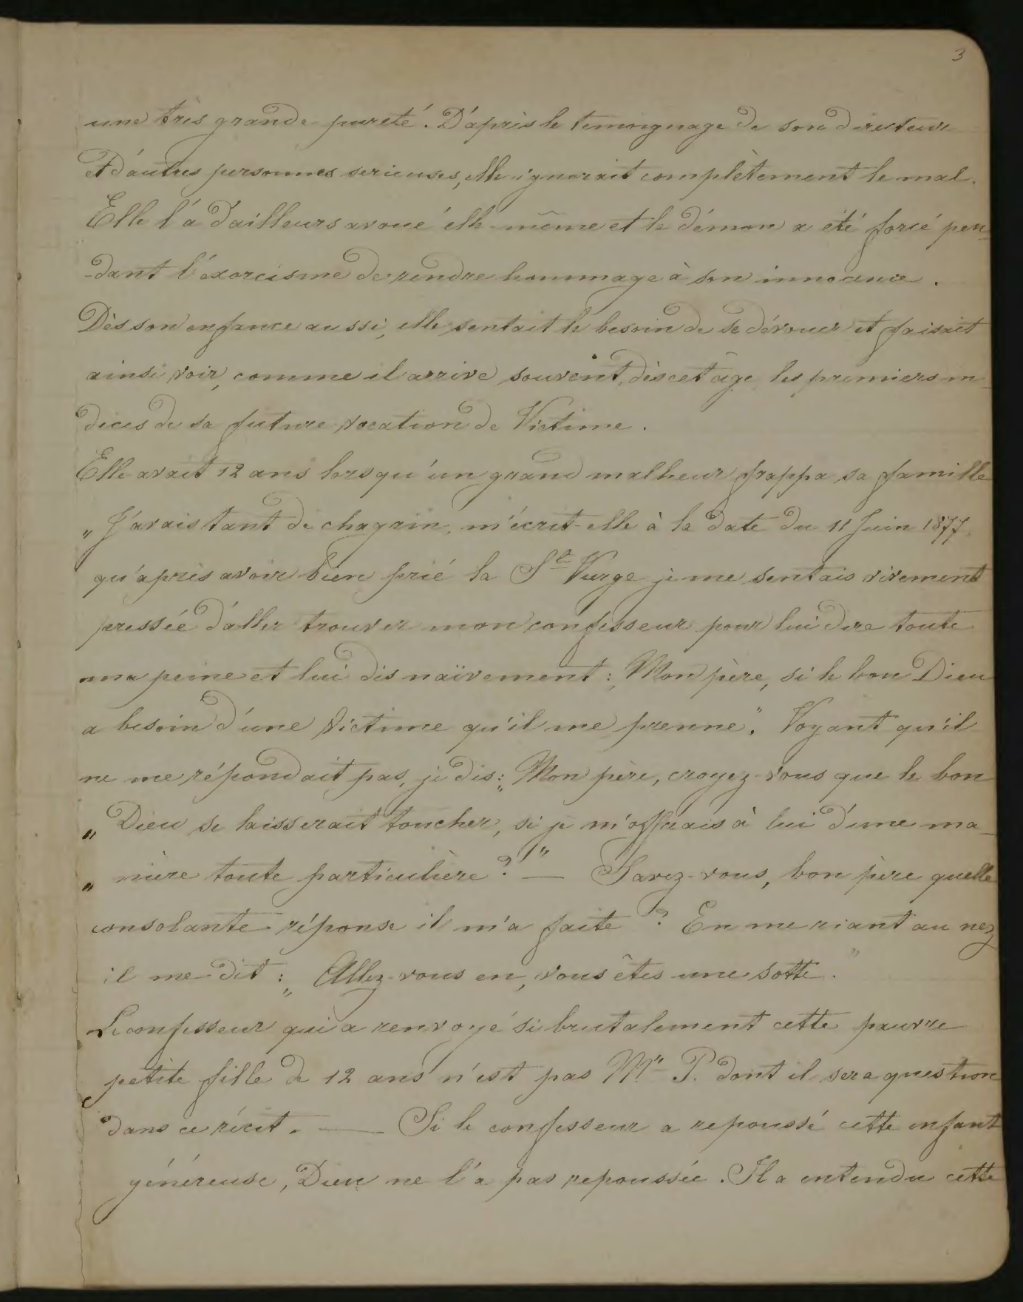 3
une très grande pureté. D'après le témoignage de son directeur
et d'autres personnes serieuses, elle ignorait complètement le mal.
Elle l'a d'ailleurs avoué elle-même et le démon a été forcé pen-
-dant l'exorcisme de rendre hommage à son innocence.
Dès son enfance aussi, elle sentait le besoin de se dévouer et faisait
ainsi voir, comme il arrive souvent, dès cet âge, les premiers in-
dices de sa future vocation de Victime.
Elle avait 12 ans lorsqu'un grand malheur frappa sa famille
„ J'avais tant de chagrin, m'écrit-elle à la date du 11 Juin 1877,
qu'après avoir bien prié la Ste Vierge je me sentais vivement
pressée d'aller trouver mon confesseur pour lui dire toute
ma peine et lui dis naïvement : Mon père, si le bon Dieu
a besoin d'une Victime qu'il me prenne." Voyant qu'il
ne me répondait pas, je dis : „ Mon père, croyez-vous que le bon
„ Dieu se laisserait toucher, si je m'offrais à lui d'une ma-
„ nière toute particulière ?" — Savez-vous, bon père quelle
consolante réponse il m'a faite ? En me riant au nez
il me dit : „ Allez-vous en, vous êtes une sotte."
Le confesseur qui a renvoyé si brutalement cette pauvre
petite fille de 12 ans n'est pas Mr P. dont il sera question
dans ce récit. — Si le confesseur a repoussé cette enfant
généreuse, Dieu ne l'a pas repoussée. Il a entendu cette